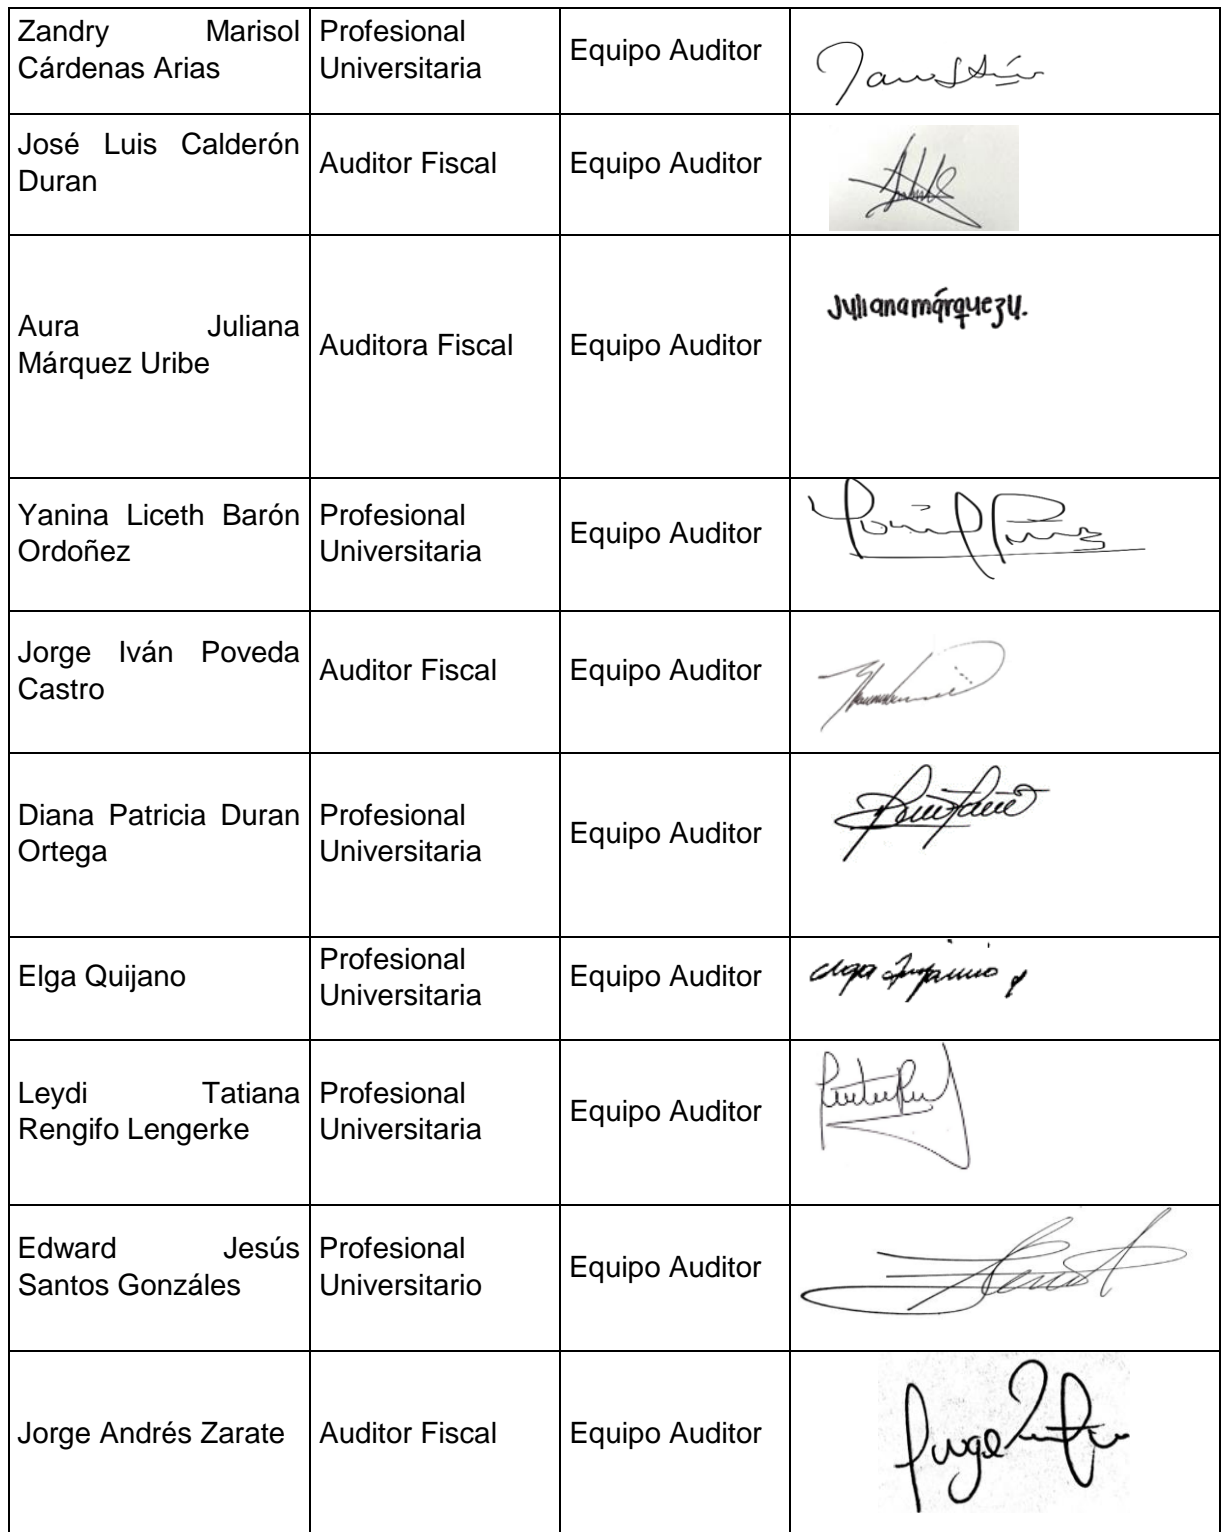 Zandry Marisol
Cárdenas Arias
Profesional
Universitaria
Equipo Auditor
José Luis Calderón
Duran
Auditor Fiscal
Equipo Auditor
Aura Juliana
Márquez Uribe
Auditora Fiscal
Equipo Auditor
Julianamárquezu.
Yanina Liceth Barón
Ordoñez
Profesional
Universitaria
Equipo Auditor
Jorge Iván Poveda
Castro
Auditor Fiscal
Equipo Auditor
Diana Patricia Duran
Ortega
Profesional
Universitaria
Equipo Auditor
Elga Quijano
Profesional
Universitaria
Equipo Auditor
Leydi Tatiana
Rengifo Lengerke
Profesional
Universitaria
Equipo Auditor
Edward Jesús
Santos Gonzáles
Profesional
Universitario
Equipo Auditor
Jorge Andrés Zarate
Auditor Fiscal
Equipo Auditor